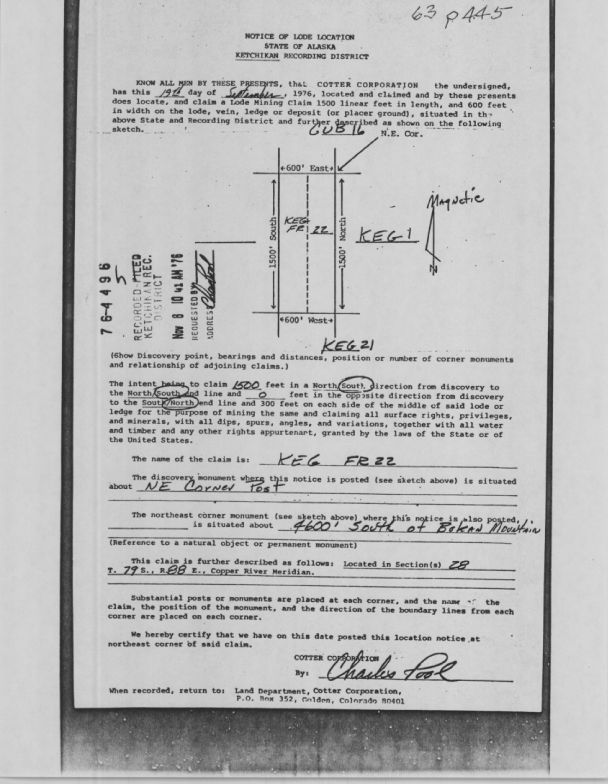 63 p 445
NOTICE OF LODE LOCATION
STATE OF ALASKA
KETCHIKAN RECORDING DISTRICT
KNOW ALL MEN BY THESE PRESENTS, that COTTER CORPORATION the undersigned,
has this 19th day of September, 1976, located and claimed and by these presents
does locate, and claim a Lode Mining Claim 1500 linear feet in length, and 600 feet
in width on the lode, vein, ledge or deposit (or placer ground), situated in the
above State and Recording District and further described as shown on the following
sketch.
CUB 16
N.E. Cor.
600' East
Magnetic
1500' South
KEG
FR 22
1500' North
KEG 1
N
76-4496
5
RECORDED-FILED
KETCHIKAN REC.
DISTRICT
Nov 8 10 41 AM '76
REQUESTED BY
ADDRESS
600' West
KEG 21
(Show Discovery point, bearings and distances, position or number of corner monuments
and relationship of adjoining claims.)
The intent being to claim 1500 feet in a North/South direction from discovery to
the North/South end line and 0 feet in the opposite direction from discovery
to the South/North end line and 300 feet on each side of the middle of said lode or
ledge for the purpose of mining the same and claiming all surface rights, privileges,
and minerals, with all dips, spurs, angles, and variations, together with all water
and timber and any other rights appurtenant, granted by the laws of the State or of
the United States.
The name of the claim is: KEG FR 22
The discovery monument where this notice is posted (see sketch above) is situated
about NE Corner Post
The northeast corner monument (see sketch above) where this notice is also posted,
is situated about 4600' South of Bokan Mountain
(Reference to a natural object or permanent monument)
This claim is further described as follows: Located in Section(s) 28
T. 79 S., R. 88 E., Copper River Meridian.
Substantial posts or monuments are placed at each corner, and the name of the
claim, the position of the monument, and the direction of the boundary lines from each
corner are placed on each corner.
We hereby certify that we have on this date posted this location notice at
northeast corner of said claim.
COTTER CORPORATION
By: Charles Pool
When recorded, return to: Land Department, Cotter Corporation,
P.O. Box 352, Golden, Colorado 80401